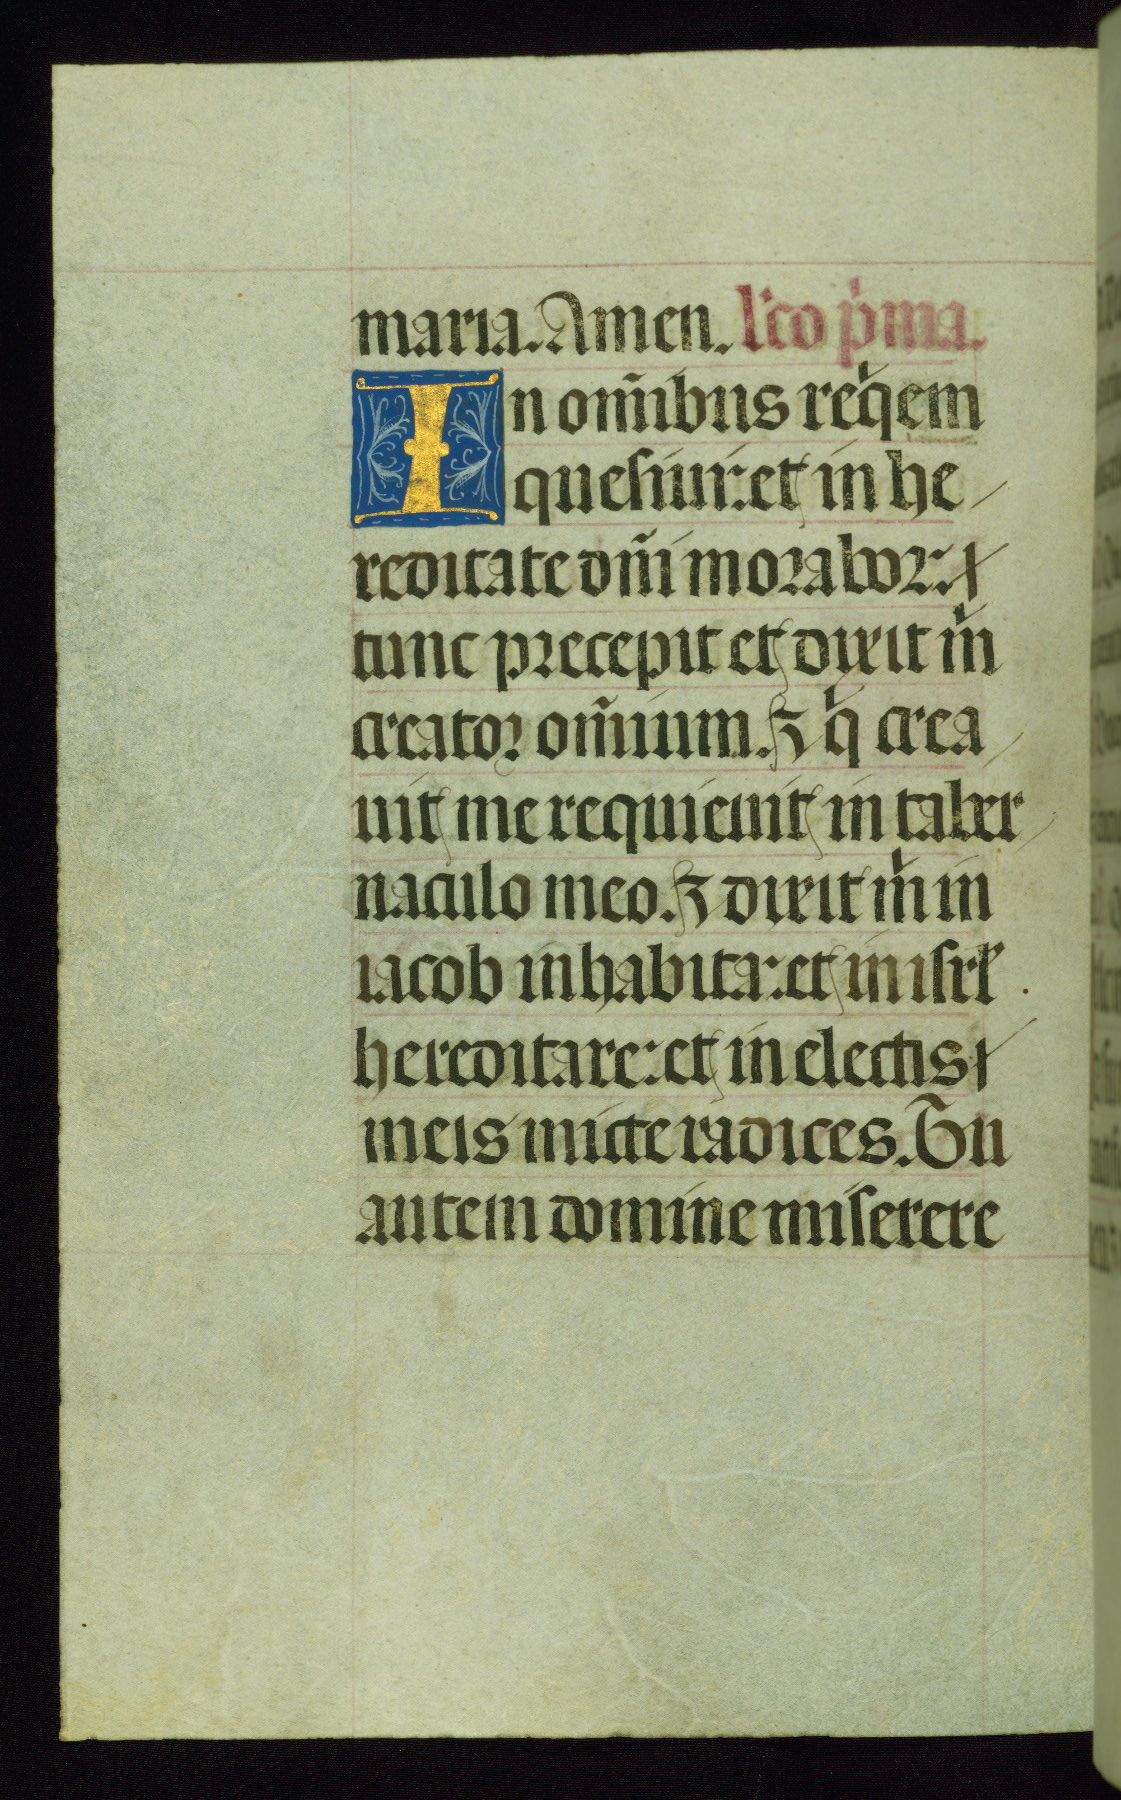 maria. Amen. lco pͥma.
In om̄ibus reqͥem
quesiui: et in he
reditate dn̄i morabor:
tunc precepit et dixit mͥ
creator om̄ium. Et qͥ crea
uit me requieuit in taber
naculo meo. Et dixit mͥ in
iacob inhabita: et in isrl̄
hereditare: et in electis
meis mitte radices. Tu
autem domine miserere